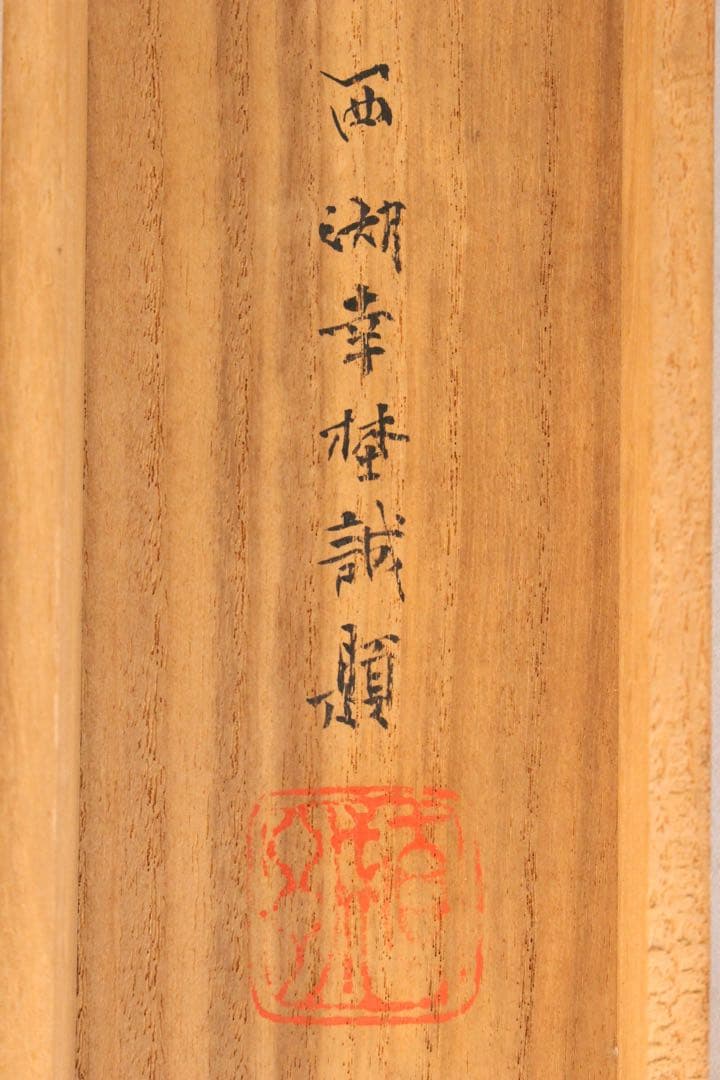 西湖幸埜誠題